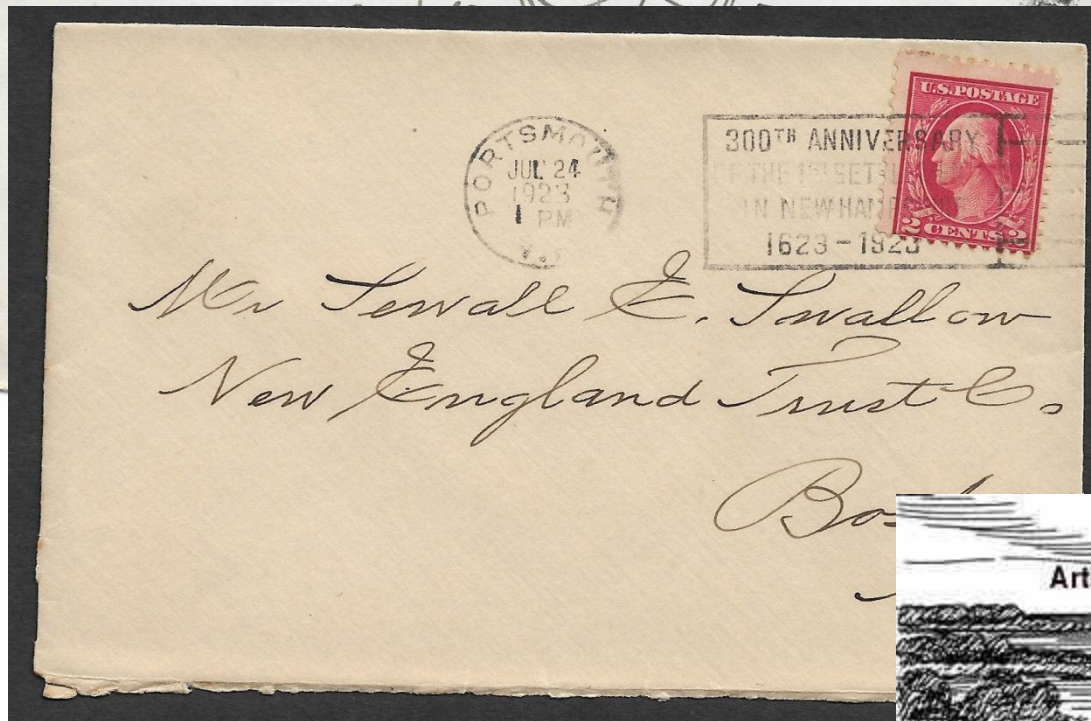 PORTSMOUTH
JUL 24
1923
1 PM
300TH ANNIVERSARY
OF THE 1ST
IN NEW
1623-1923
U.S. POSTAGE
2 CENTS 2
Mr Sewall E. Swallow
New England Trust Co
Art